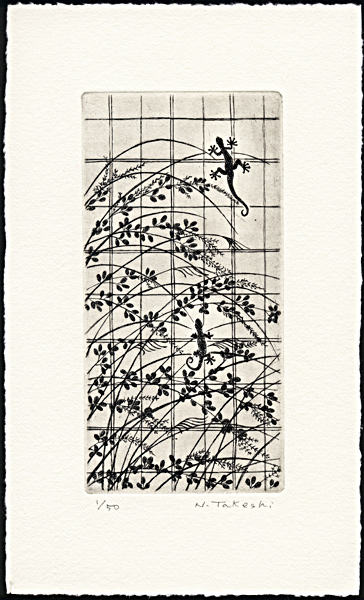 1/50 N. Takeshi